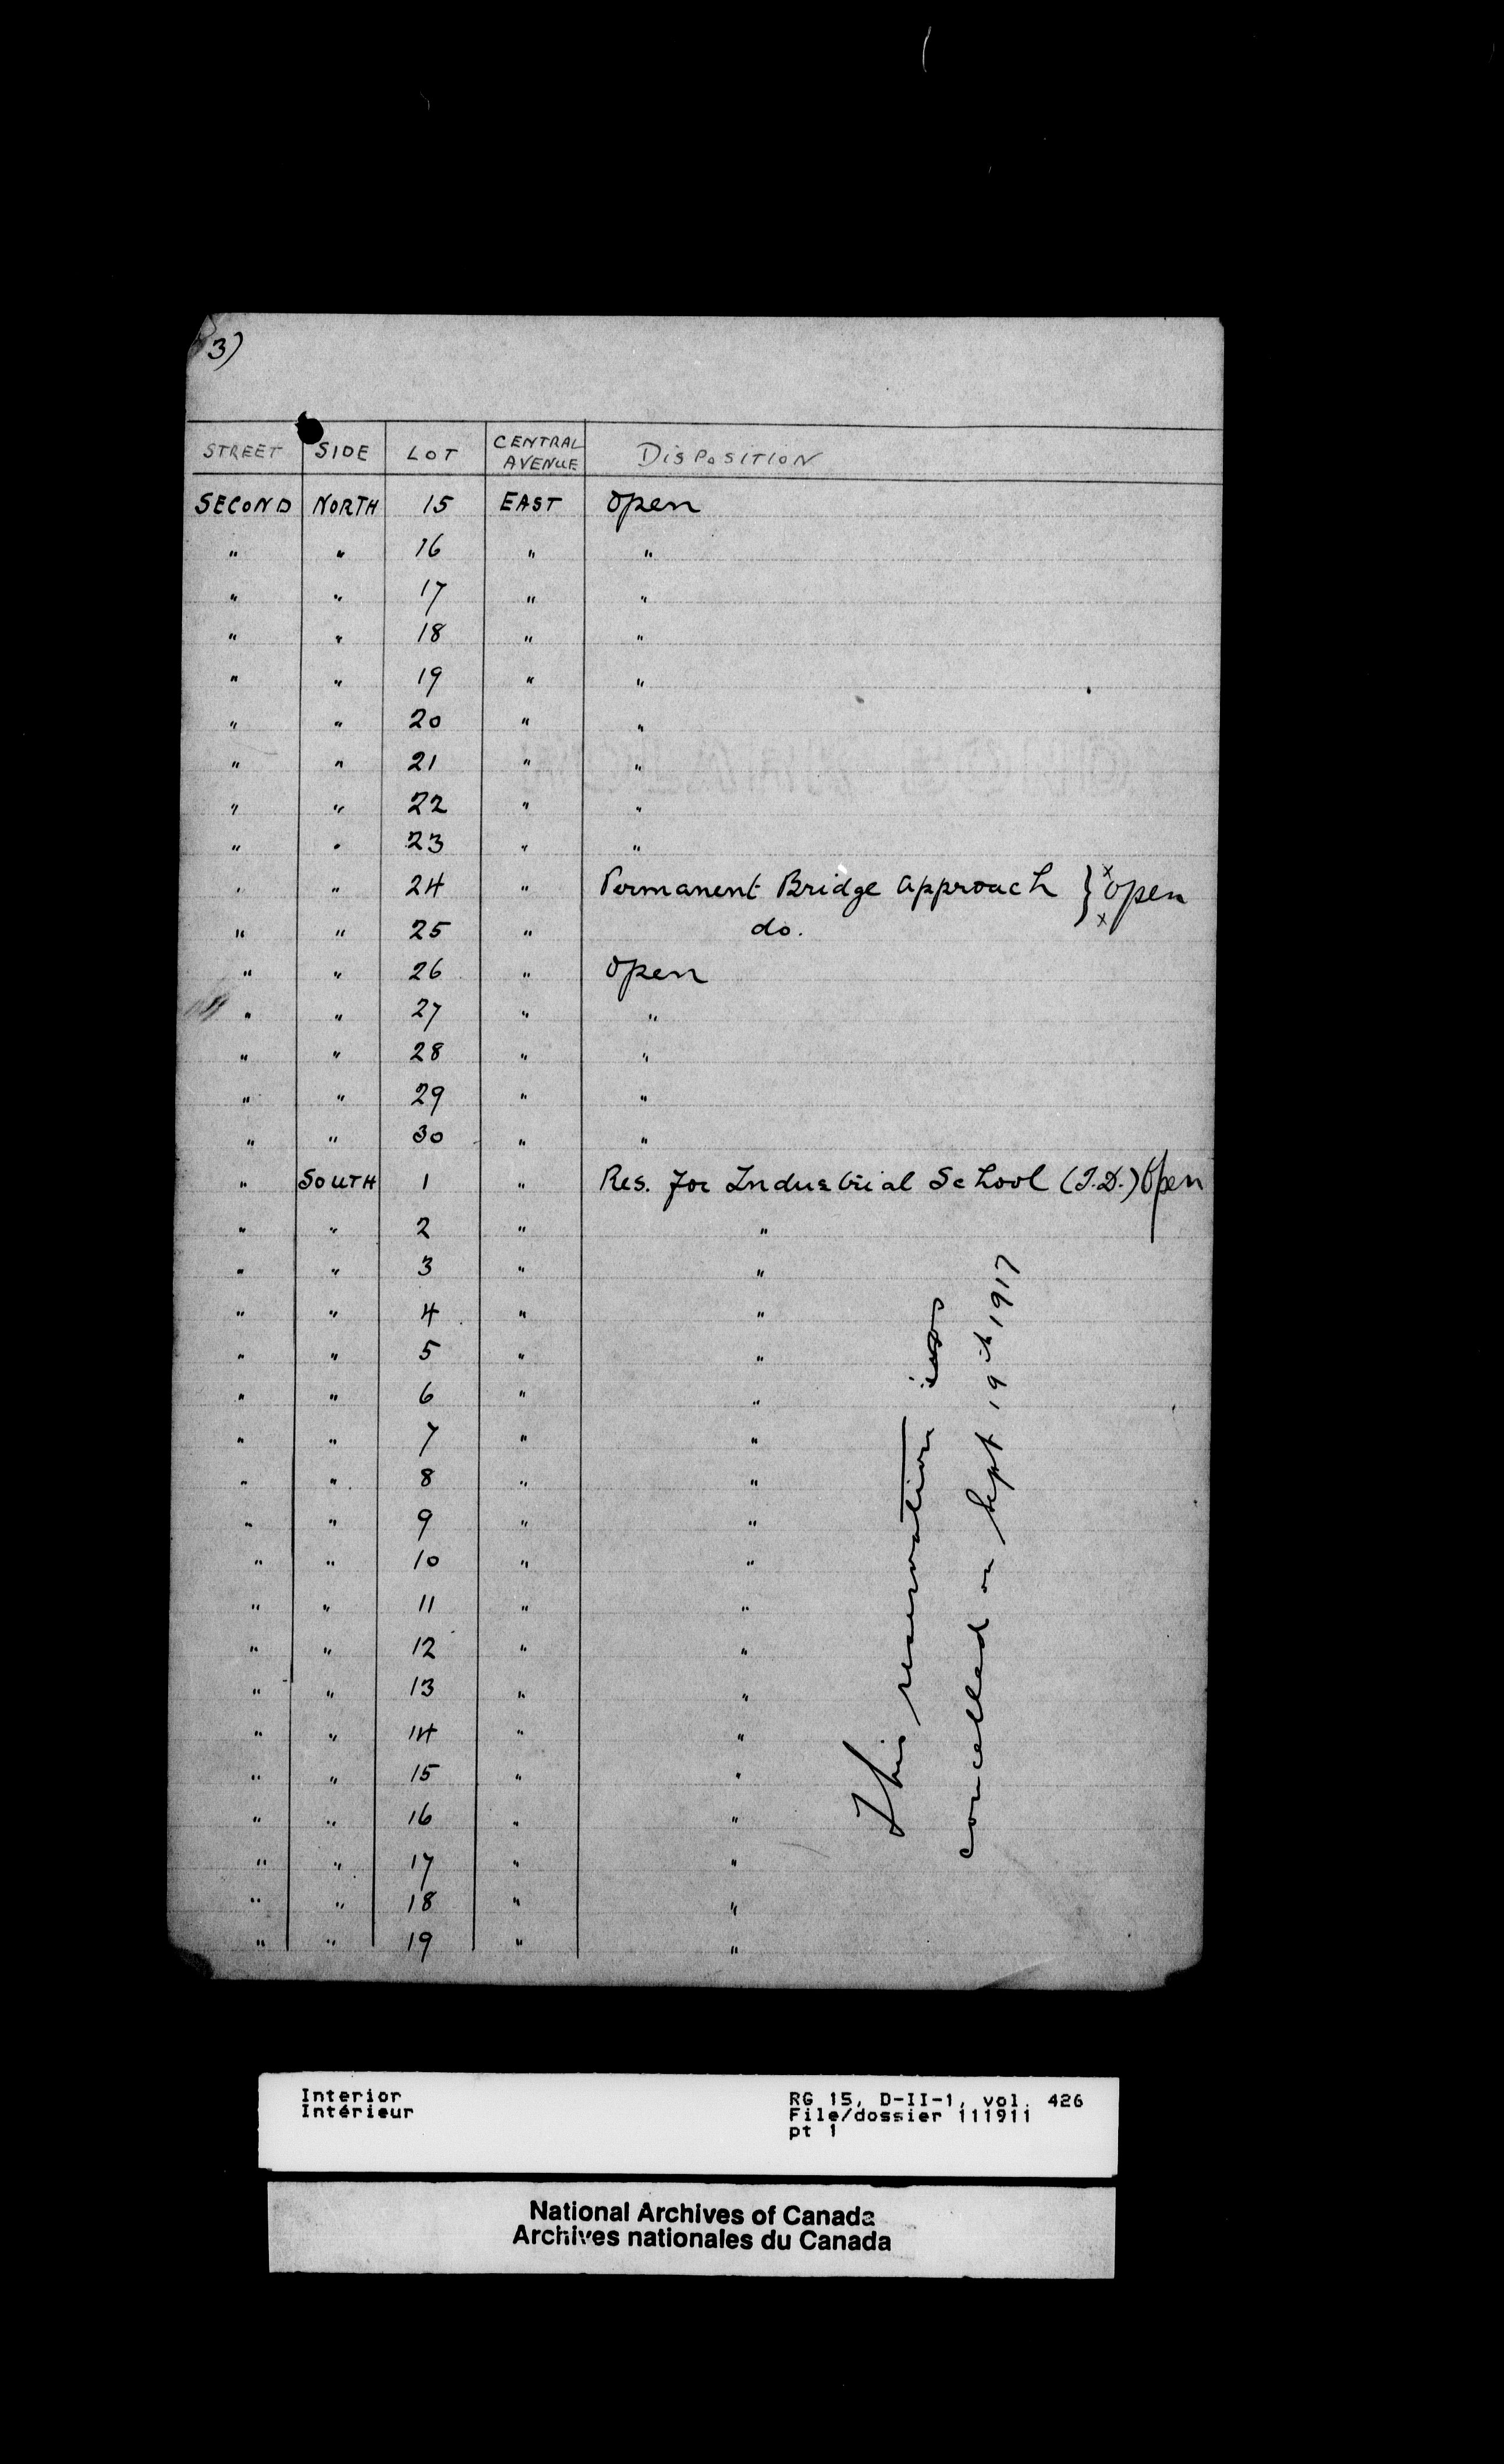 3)
STREET SIDE LOT CENTRAL AVENUE DISPOSITION
SECOND NORTH 15 EAST open
" " 16 " "
" " 17 " "
" " 18 " "
" " 19 " "
" " 20 " "
" " 21 " "
" " 22 " "
" " 23 " "
" " 24 " Permanent Bridge approach } x open
" " 25 " do. x
" " 26 " open
" " 27 " "
" " 28 " "
" " 29 " "
" " 30 " "
" SOUTH 1 " Res. for Industrial School (I.D.) Open
" " 2 " "
" " 3 " "
" " 4 " "
" " 5 " "
" " 6 " "
" " 7 " "
" " 8 " "
" " 9 " "
" " 10 " "
" " 11 " "
" " 12 " "
" " 13 " "
" " 14 " "
" " 15 " "
" " 16 " "
" " 17 " "
" " 18 " "
" " 19 " "
This reservation was
cancelled on Sept 19th 1917
Interior
Intérieur
RG 15, D-II-1, vol. 426
File/dossier 111911
pt 1
National Archives of Canada
Archives nationales du Canada